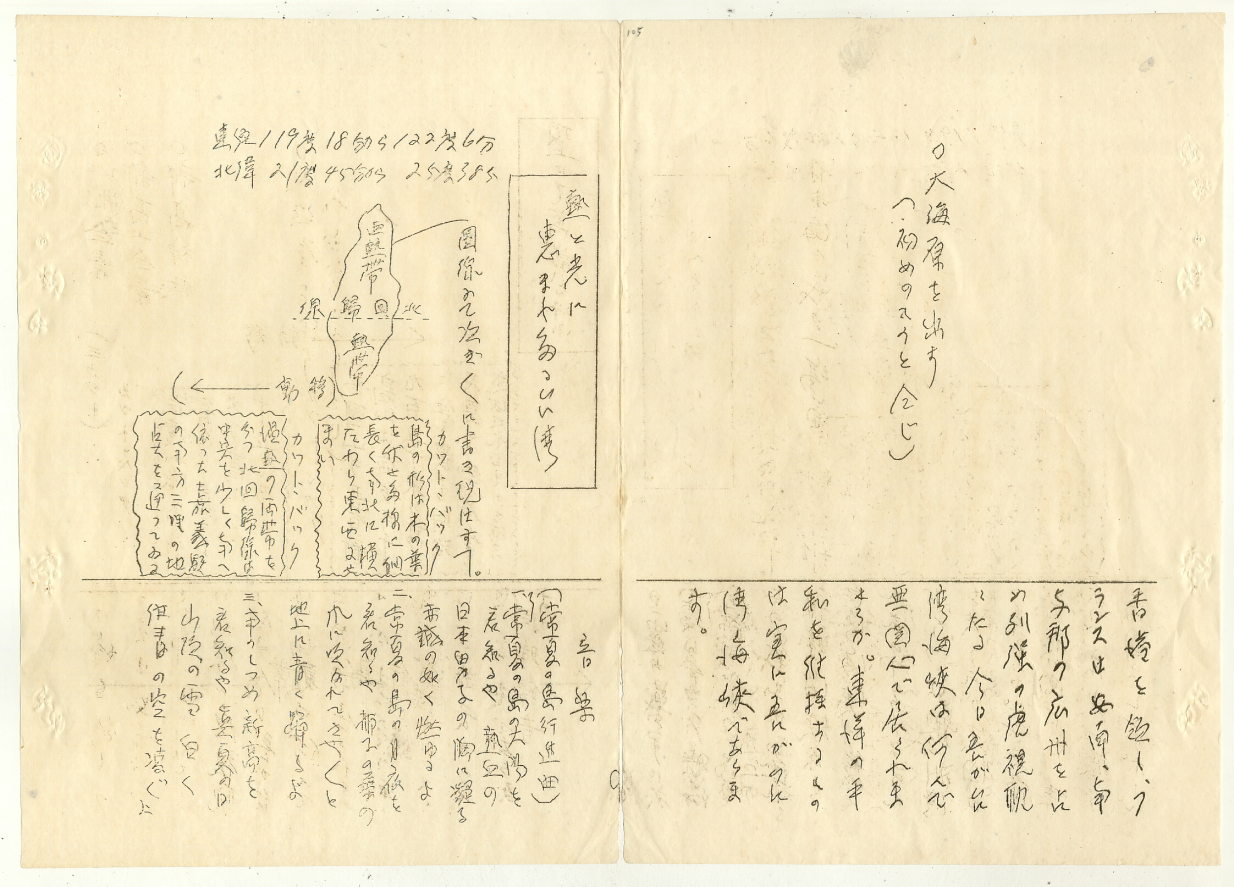 105
の大海原を出す
(初めのところと全じ)
香港を領し、フ
ランスは安南、南
支那の広州を占
め列強の虎視眈
々たる今日吾が台
湾海峡は何んで
無関心で居られま
せうか。東洋の平
和を維持するもの
は実に吾がのに
湾海峡であらま
す。
熱と光に
恵まれたるたいい湾
東経119度18分から122度6分
北緯21度45分から 25度38分
亜熱帯
北回歸線
熱帯
図線みて次ぎくに書き現はすて。
(移動 ←)
カット・バック
島の形は木の葉
を伏せた様に細
長くて南北に横
たわり東西はせ
まい
カット・バック
温熱の両帯を
分つ北回歸線は
中央を少しく南へ
依った嘉義駅
の南方三哩の地
点を通つてゐる
音楽
(常夏の島行進曲)
一、常夏の島の太陽を
君知るや 熱血の
日本男子の胸に凝る
赤誠の如く燃ゆるよ
二、常夏の島の月夜を
君知るや 椰子の葉の
風に吹かれてさやくと
地上に青く踊るよ
三、南のしづめ新高を
君知るや 真夏の日
山頂の雪白く
群青の空を凌ぐよ